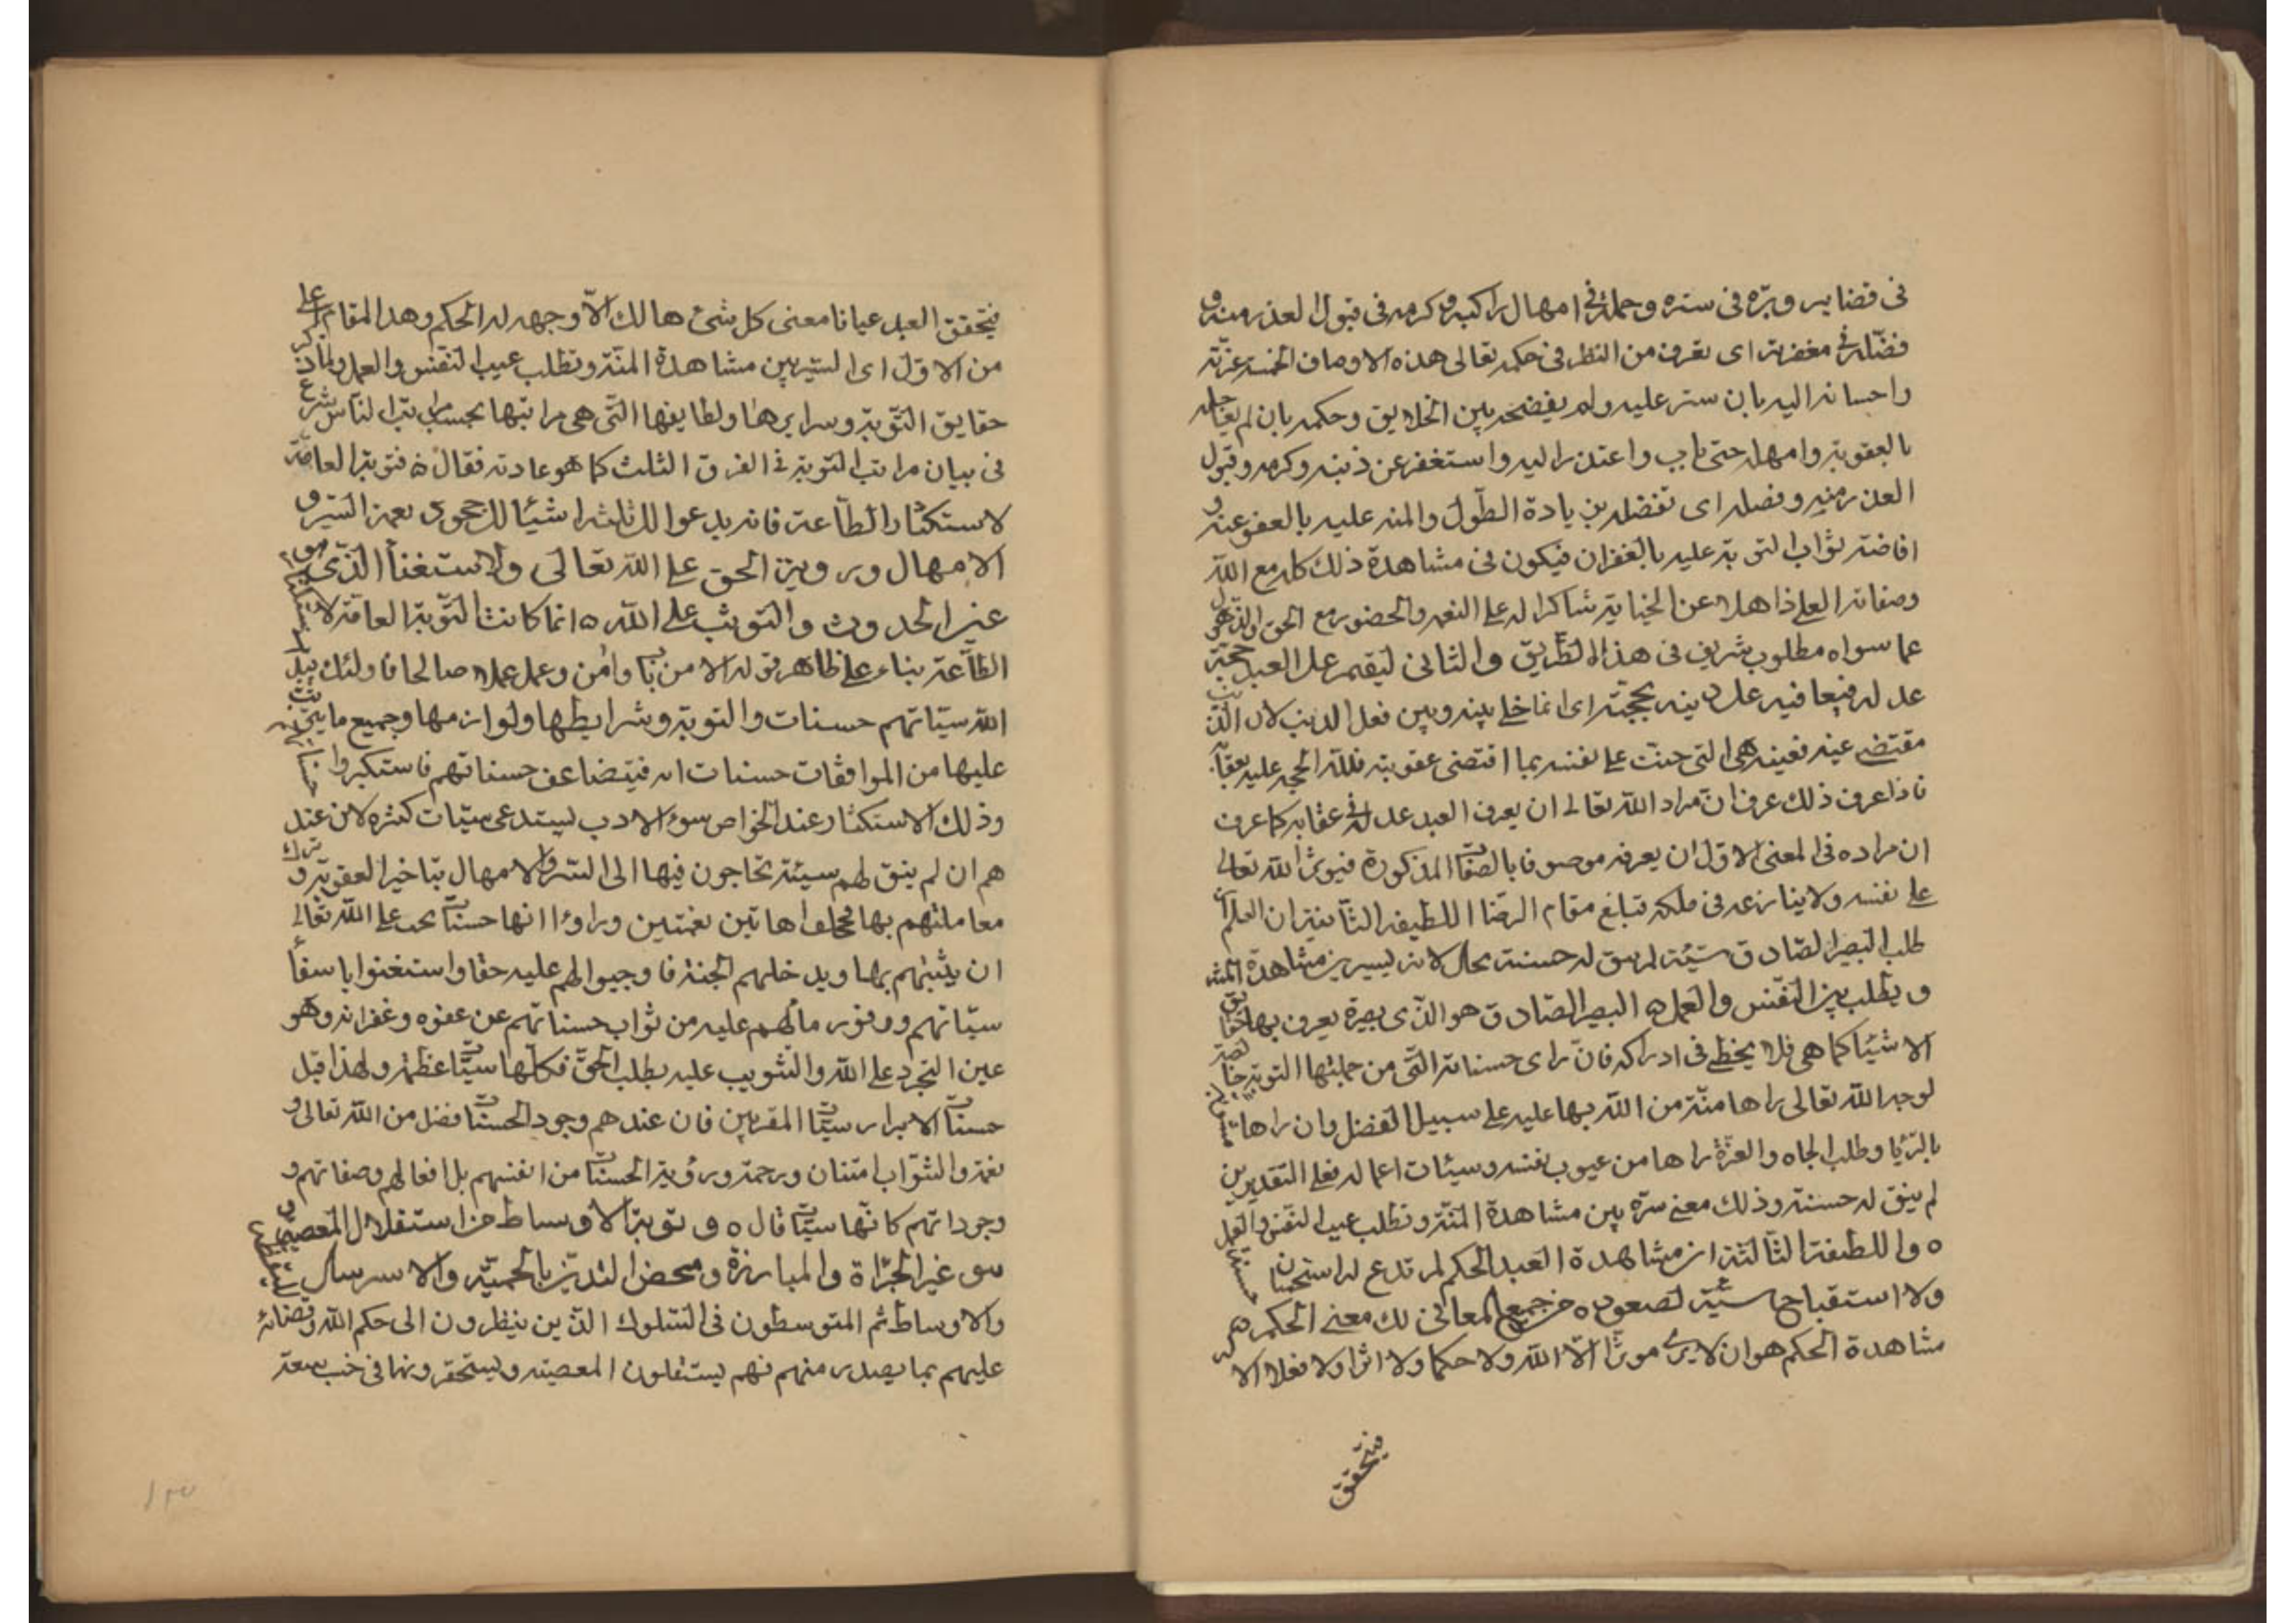 فى قضايه وبرّه فى ستره وحمله فى امهال راكبه وكرمه فى قبول العذر منه و
فضّله فى مغفرته اى تعرف من النظر فى حكمه تعالى هذه الاوصاف الخمسه عزته
واحسانه اليه بان ستر عليه ولم يفضحه بين الخلايق وحكمه بان لم يعاجله
بالعقوبة وامهله حتى تاب واعتذر اليه واستغفر عن ذنبه وكرمه وقبول
العذر منه وفضله اى تفضله بزيادة الطول والمنه عليه بالعفو عنه و
افاضة ثواب التوبة عليه بالغفران فيكون فى مشاهدة ذلك كله مع الله
وصفاته العلى ذاهلا عن الجنايه شاكرا له على النعمه والحضور مع الحق والذهول
عما سواه مطلوب شريف فى هذا الطريق والثانى ليقيم على العبد حجّة
عدله فيعا فيه على ذنبه بحجّته اى انما خلى بينه وبين فعل الذنب لان الذنب
مقتضى عينه فعينه هى التى جنت على نفسه بما اقتضى عقوبته فلله الحجه عليه بعقابه
فاذا عرف ذلك عرف انّ مراد الله تعالى ان يعرف العبد عدله فى عقابه كما عرف
ان مراده فى المعنى الاول ان يعرفه موصوفا بالصفات المذكورة فيوثر الله تعالى
على نفسه ولا ينازعه فى ملكه فتبلغ مقام الرضا اللطيفه الثانية ان العلم ان
طلب البصير الصّادق سيّئة لم يبق له حسنة بحال لانه يسير بين مشاهدة المنّة
ويطلب بين النفس والعمل ه البصير الصّادق هو الذى بصيرة يعرف بها حقايق
الاشيئا كما هى فلا يخطى فى ادراكه فان راى حسناته التى من جملتها التوبة خالصة
لوجه الله تعالى راها منّة من الله بها عليه على سبيل التفضل وان راها مشوبة
بالرّيا وطلب الجاه والعزّة راها من عيوب نفسه وسيئات اعماله فعلى التقديرين
لم يبق له حسنة وذلك معنى سيره بين مشاهدة المنّة وتطلب عيب النفس والعمل
ه واللطيفة الثالثة ان مشاهدة العبد الحكم لم تدع له استحسان حسنة
ولا استقباح سيّئة لصعوده من جميع المعانى لك معنى الحكم ه
مشاهدة الحكم هو ان لا يرى موثرا الّا الله ولا حكما ولا اثرا ولا فعلا الا
فيتحقق
فيتحقق العبد عيانا معنى كل شئ هالك الّا وجهه له الحكم وهذ المقام اعلى
من الاوّل اى السّير بين مشاهدة المنّة وتطلب عيب النّفس والعمل ولما ذكر
حقايق التّوبة وسرايرها ولطايفها التّى هى مراتبها بحسب مراتب النّاس شرع
فى بيان مراتب التوبة فى الفرق الثلث كما هو عادته فقال ه فتوبة العامّة
لاستكثار الطّاعة فانه يدعوا الى ثلثه اشيئا لك جحود نعمة السّتر و
الامهال ورويّة الحق على الله تعالى والاستغنأ الذّى هو
عين الحدوث والتوثّب على الله ه انما كانت التّوبة العامّة لاستكثار
الطّاعة بناء على ظاهر قوله الا من تاب وامن وعمل عملا صالحا فاولئك يبدل
الله سيّاتهم حسنات والتوبة وشرايطها ولوازمها وجميع ما يترتب
عليها من الموافقات حسنات له فيتضاعف حسناتهم فاستكبروا حسناتهم
وذلك الاستكثار عند الخواص سوء الادب يستدعى سيّات كثره لان عند
هم ان لم يبق لهم سيئة تحاجون فيها الى السّتر والامهال بتاخير العقوبة وترك
معاملتهم بها فجحدوا هاتين نعمتين وراوا انها حسنات يجب على الله تعالى
ان يثبتهم بها ويدخلهم الجنة فاوجبوا لهم عليه حقا واستغنوا باسقأ
سيّاتهم ووفور مالهم عليه من ثواب حسناتهم عن عفوه وغفرانه وهو
عين التجرد على الله والتّوثيب عليه بطلب الحقّ فكلّها سيّات عظيمة ولهذا قيل
حسنات الابرار سيّات المقربين فان عندهم وجود الحسنات فضل من الله تعالى و
نعمة والثّواب امتنان ورحمة ورؤية الحسنات من انفسهم بل افعالهم وصفاتهم و
وجوداتهم كانّها سيّات قال ه و توبة الاوساط من استقلال المعصية و
هو عين الجرّاة والمبارزة ومحض التديّن بالحميّة والاسرسال للقطيعة
والاوساط ثم المتوسطون فى السّلوك الذين ينظرون الى حكم الله وقضائه
عليهم بما يصدر منهم فهم يستقلون المعصية ويستحقرونها فى جنب سعة
١٣